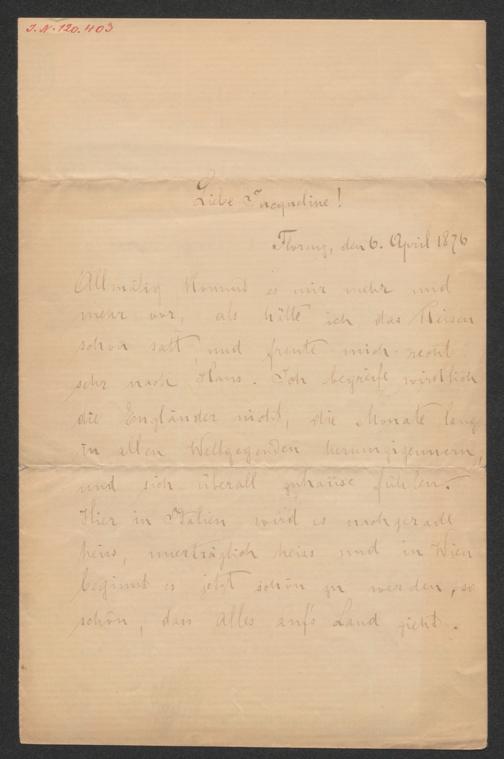 J.N. 120.403
Liebe Jacqueline!
Florenz, den 6. April 1876
Allmälig kommt es mir mehr und
mehr vor, als hätte ich das Reisen
schon satt und freute mich recht
sehr nach Haus. Ich begreife wirklich
die Engländer nicht, die Monate lang
in allen Weltgegenden herumzigeunern,
und sich überall zuhause fühlen.
Hier in Italien wird es nachgerade
heiss, unerträglich heiss und in Wien
beginnt es jetzt schön zu werden, so
schön, dass Alles auf's Land zieht.